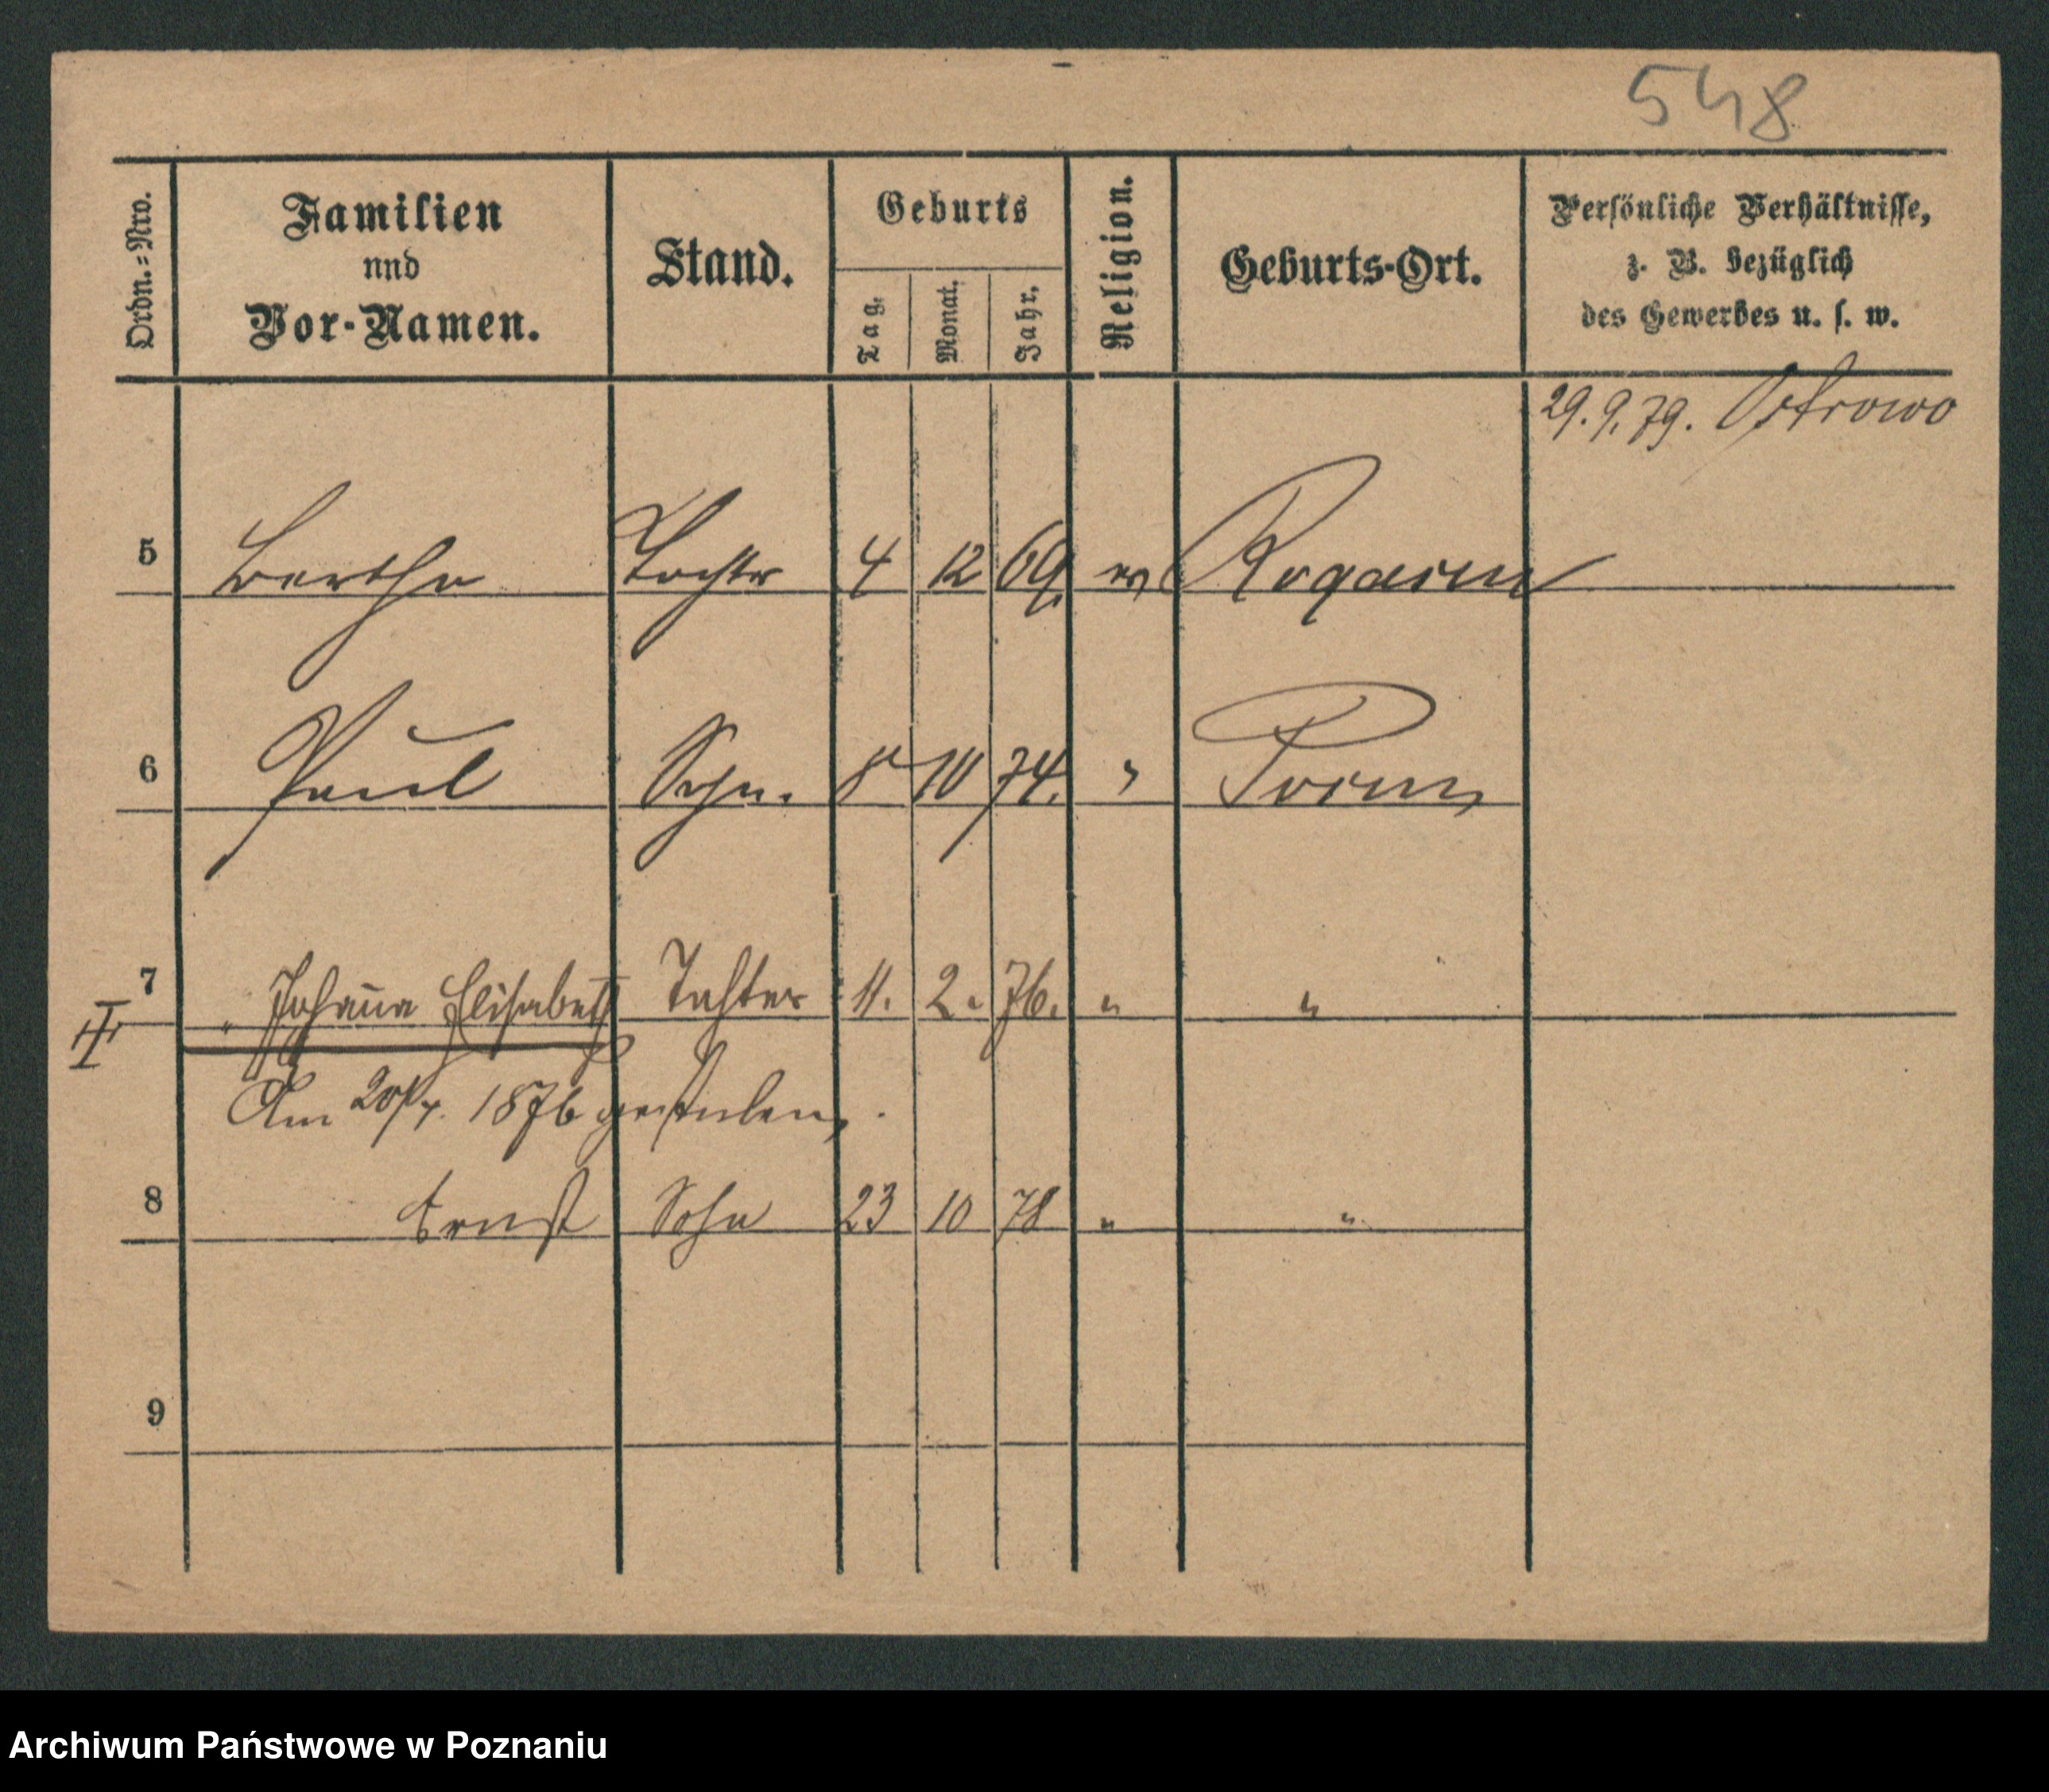 548
Ordn.=Nro.
Familien
und
Vor-Namen.
Stand.
Geburts
Tag.
Monat.
Jahr.
Religion.
Geburts-Ort.
Persönliche Verhältnisse,
z. B. bezüglich
des Gewerbes u. s. w.
29.9.79. Ostrowo
5 Bertha Tochter 4 12 69. ev
6 Paul Sohn. 8 10 74. " Posen
7 " Johanna Elisabeth Tochter 11. 2. 76. " "
Am 20/4. 1876 gestorben.
8 Ernst Sohn 23 10 78 " "
9
Archiwum Państwowe w Poznaniu